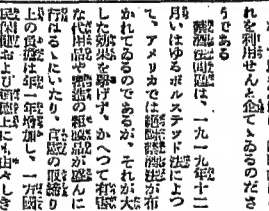 れを利用せんと企てゝゐるのださ
うである
禁酒法問題は、一九一九年十二
月いはゆるボルステッド法によつ
て、アメリカでは絶対禁酒法が布
かれてゐるのであるが、それが大
した効果を挙げず、かへつて有害
な代用品や密造の粗悪品が盛んに
行はるゝにいたり、官憲の取締り
上の負担は年々増加し、一方国
民保健および道徳上にも由々しき